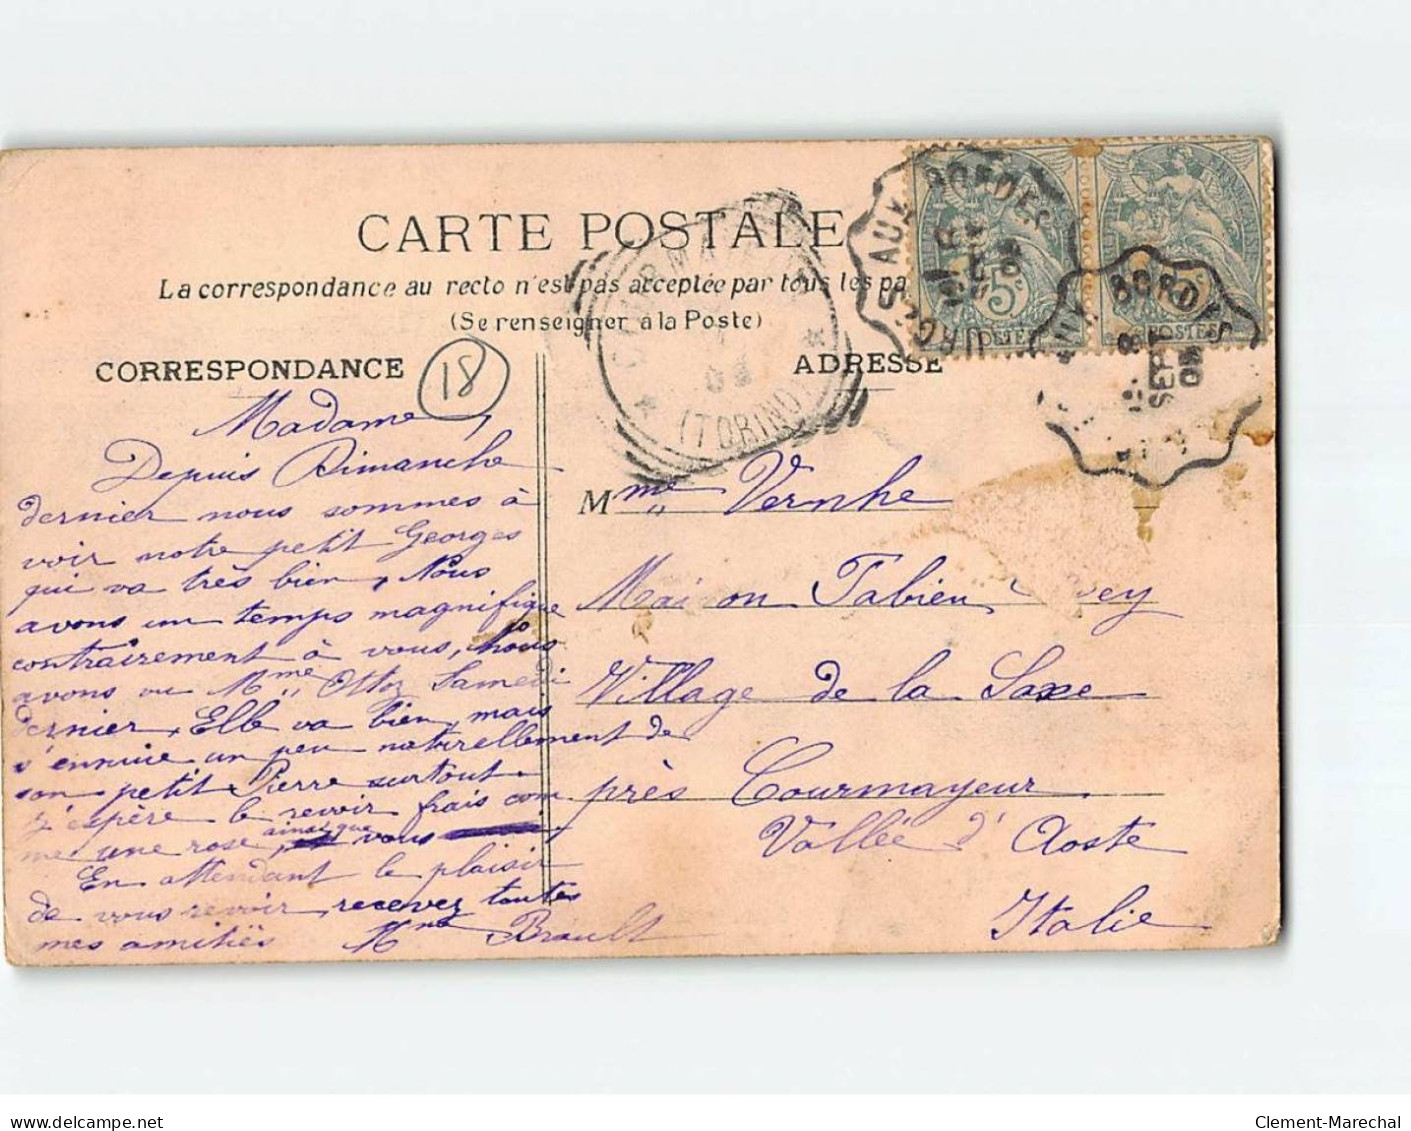 CARTE POSTALE
La correspondance au recto n'est pas acceptée par tous les pa
(Se renseigner à la Poste)
CORRESPONDANCE
18
ADRESSE
Madame,
Depuis Dimanche
dernier nous sommes à
voir notre petit Georges
qui va très bien, Nous
avons un temps magnifique
contrairement à vous, Nous
avons vu Mme Ottoz Samedi
dernier, Elle va bien, mais
s'ennuie un peu naturellement de
son petit Pierre surtout
j'espère le revoir frais com
me une rose, ainsi que vous
En attendant le plaisir
de vous revoir, recevez toutes
mes amitiés Mme Brault
Mme Vernhe
Maison Fabien
Village de la Saxe
près Courmayeur
Vallée d'Aoste
Italie
AUX BORDES
SEPT
5c
POSTES
AUX BORDES
8
SEPT
09
POSTES
COURMAYEUR
(TORINO)
Clement-Marechal